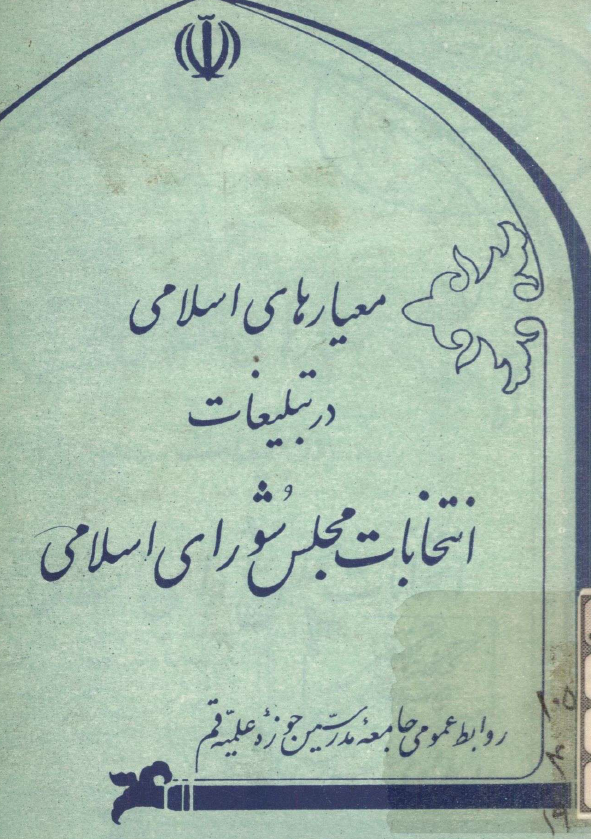 معیارهای اسلامی
در تبلیغات
انتخابات مجلس شُورای اسلامی
روابط عمومی جامعهٔ مدرسین حوزهٔ علمیّه قم